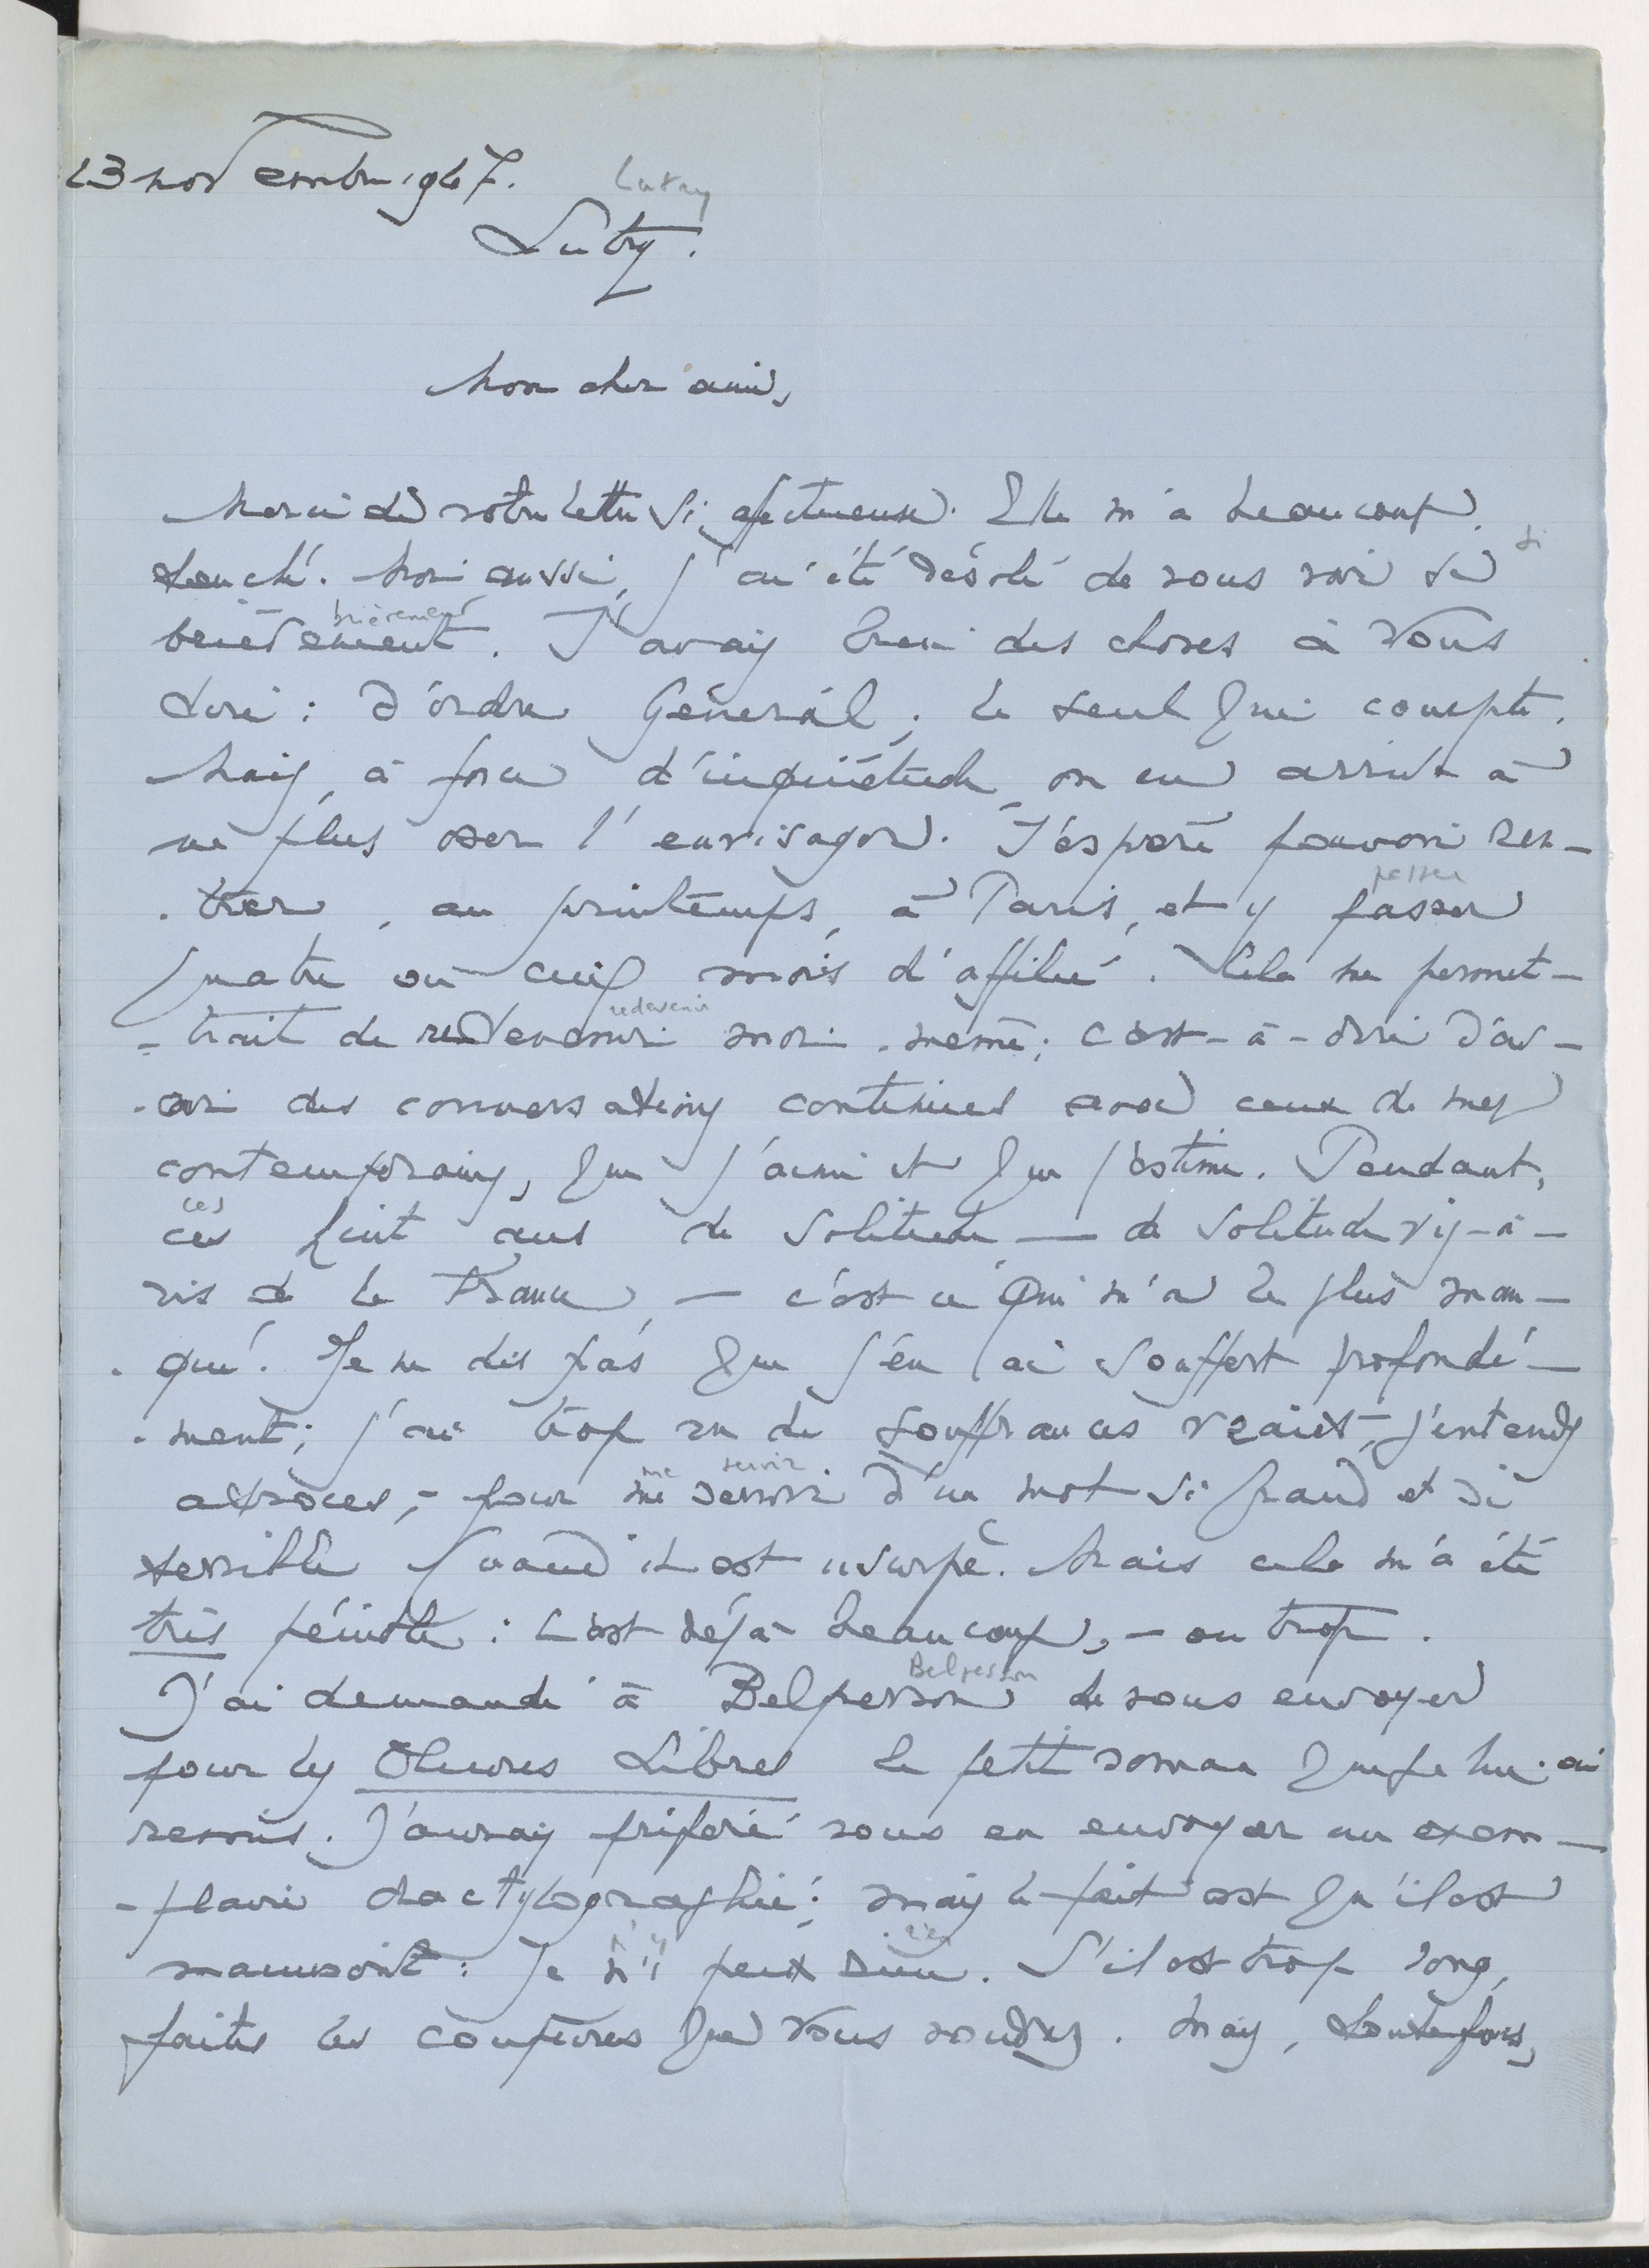 23 novembre 1947.
Lutry
Lutry.
Mon cher ami,
Merci de votre lettre si affectueuse. Elle m'a beaucoup
si
touché. Moi aussi, j'ai été désolé de vous voir si
brièvement
brièvement. J'avais bien des choses à vous
dire : d'ordre Général, le seul qui compte.
Mais, à force d'inquiétude, on en arrive à
ne plus oser l'envisager. J'espère pouvoir ren-
passer
-trer, au printemps, à Paris, et y passer
quatre ou cinq mois d'affilée. Cela me permet-
redevenir
-trait de redevenir moi-même ; c'est-à-dire d'av-
-oir des conversations continues avec ceux de mes
contemporains, que j'aime et que j'estime. Pendant,
ces
ces huit ans de solitude — de solitude vis-à-
vis de la France, — c'est ce qui m'a le plus man-
-qué. Je ne dis pas que j'en ai souffert profondé-
-ment ; j'ai trop vu de souffrances vraies, j'entends
me servir
atroces, - pour me servir d'un mot si grand et si
terrible quand il est usurpé. Mais cela m'a été
très pénible : c'est déjà beaucoup, — ou trop.
Belperron
J'ai demandé à Belperron de vous envoyer
pour les Œuvres Libres le petit roman que je lui ai
remis. J'aurais préféré vous en envoyer un exem-
-plaire dactylographié ; mais le fait est qu'il est
n'y rien
manuscrit : Je n'y peux rien. S'il est trop long,
faites les coupures que vous voudrez. Mais, toutefois,